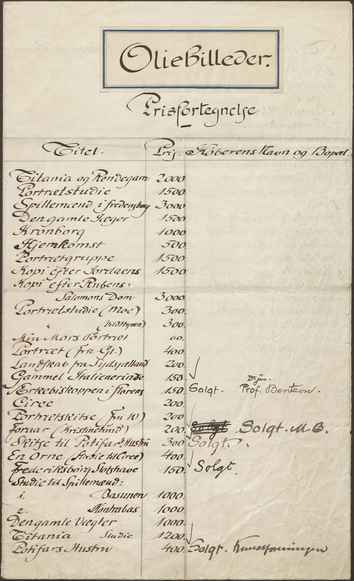 Oliebilleder.
Prisfortegnelse
Titel. Pris. Køberens Navn og Bopæl.
Titania og Rendegarn 2000
Portrætstudie 1500
Spillemænd i Fredensborg 3000
Den gamle Jæger 1500
Kronborg 1000
Hjemkomst 500
Portrætgruppe 1500
Kopi efter Jordaens 1500
Kopi efter Rubens:
Salomons Dom 3000
Portrætstudie (Moe) 300
" 300
Min Mors Portræt
Portræt (fra Gl.) 400
Landskab fra Sydsjælland 200
Gammel Italienerinde 150
Ærkebiskoppen i Florens 150 Solgt. Prof. Berntsen.
Circe 200
Portrætskitse (Fru W) 200
Foraar 200 Solgt. M.B.
Skitse til Potifars Hustru 300 Solgt.
En Orne (Skitse til Circe) 400
Frederiksborg Slotshave 150 Solgt.
Studie til Spillemænd:
1. Basunen 1000
2. Kontrabas 1000
Den gamle Vægter 1000
Titania Studie 1200
Potifars Hustru 400 Solgt. Kunstforeningen